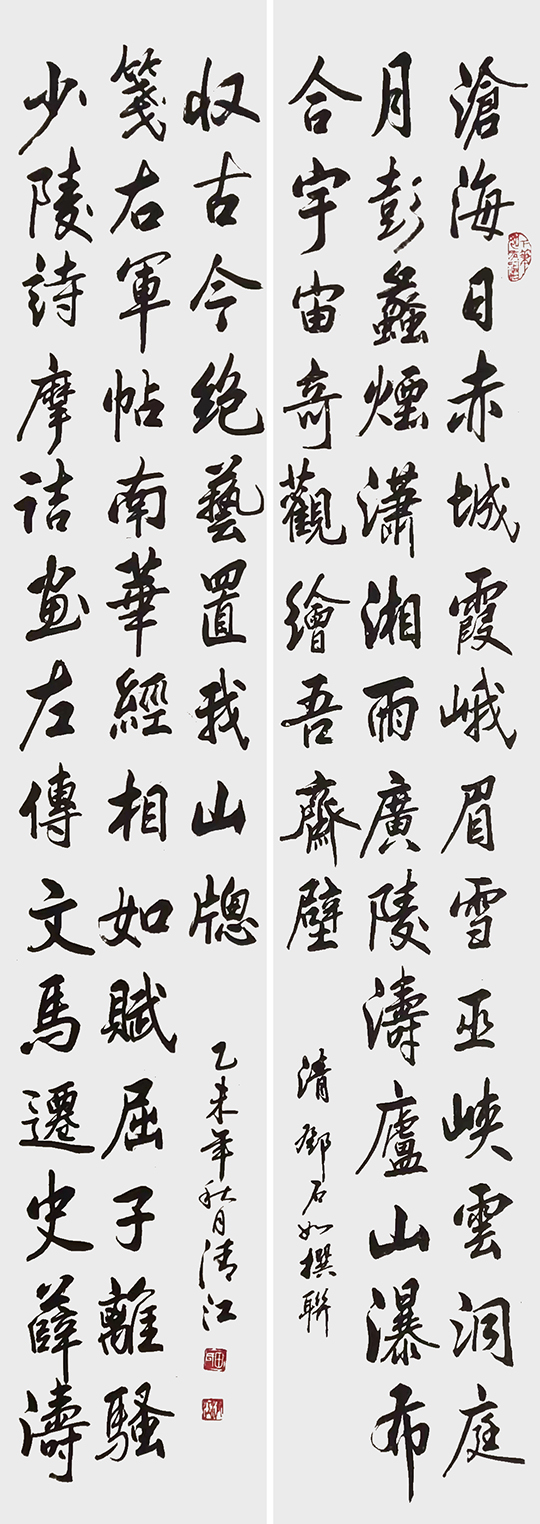 滄海日赤城霞峨眉雪巫峽雲洞庭
月彭蠡煙瀟湘雨廣陵濤廬山瀑布
合宇宙奇觀繪吾齋壁
清鄧石如撰聯
少陵詩摩詰畫左傳文馬遷史薛濤
箋右軍帖南華經相如賦屈子離騷
収古今絶藝置我山牕
乙未年秋月清江